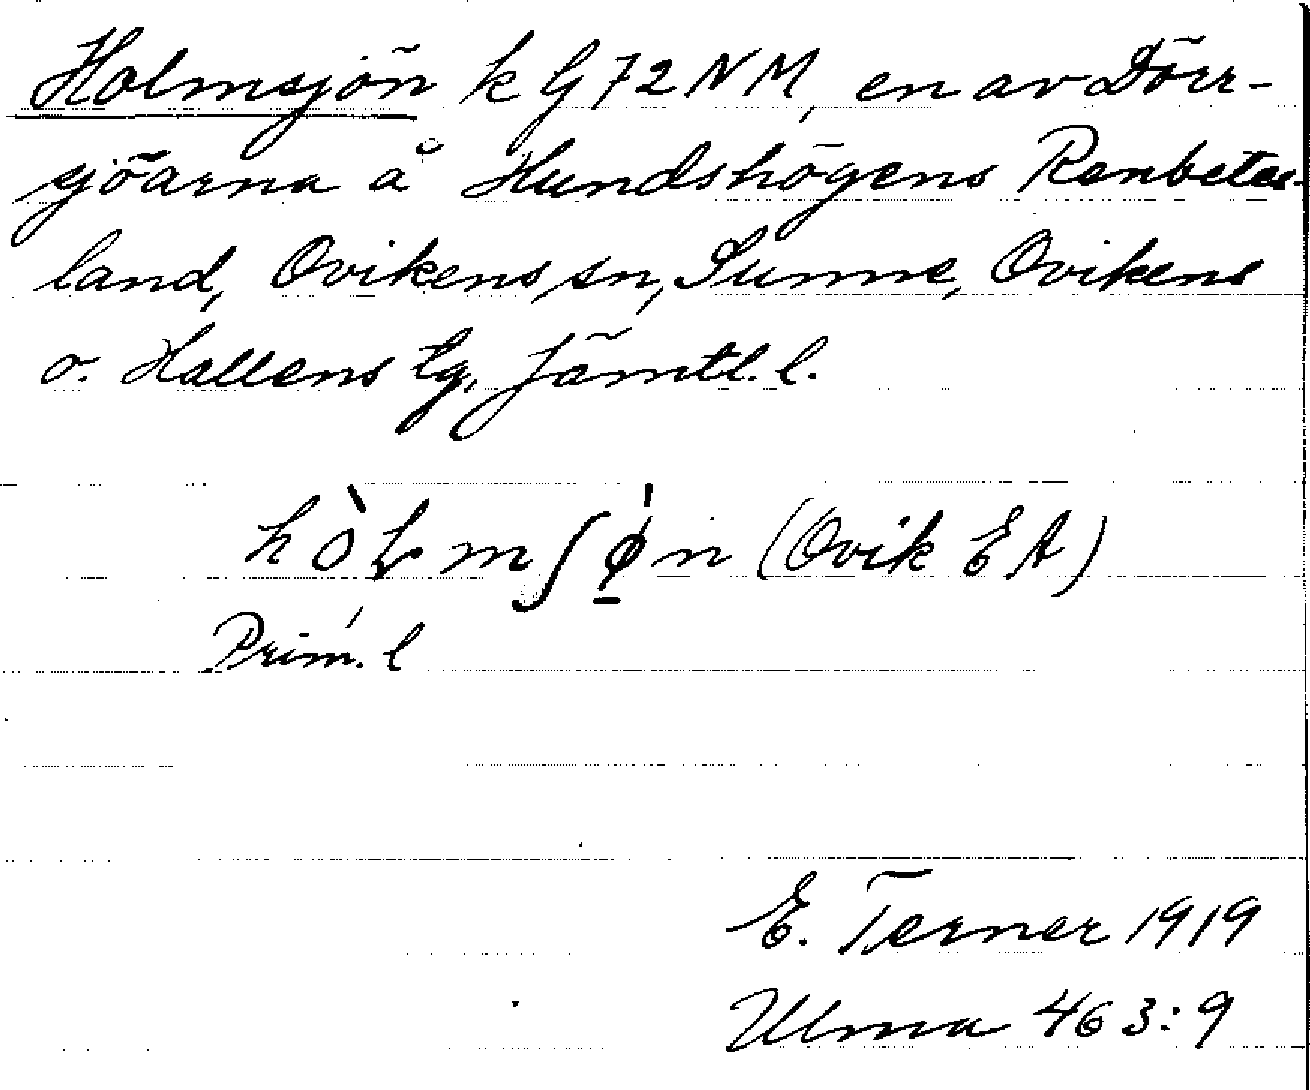 Holmsjön k G 72 NM, en av Dörr-
sjöarna å Hundshögens Renbetes-
land, Ovikens sn, Sunne, Ovikens
o. Hallens tg, Jämtl. l.
hòɫmʃø̀n (Ovik E A)
Prim. l
E. Terner 1919
Ulma 463:9